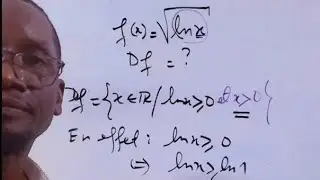 f(x) = √ln x
Df = ?
Df = {x ∈ ℝ / ln x ⩾ 0 et x > 0}
En effet : ln x ⩾ 0
⇔ ln x ⩾ ln 1